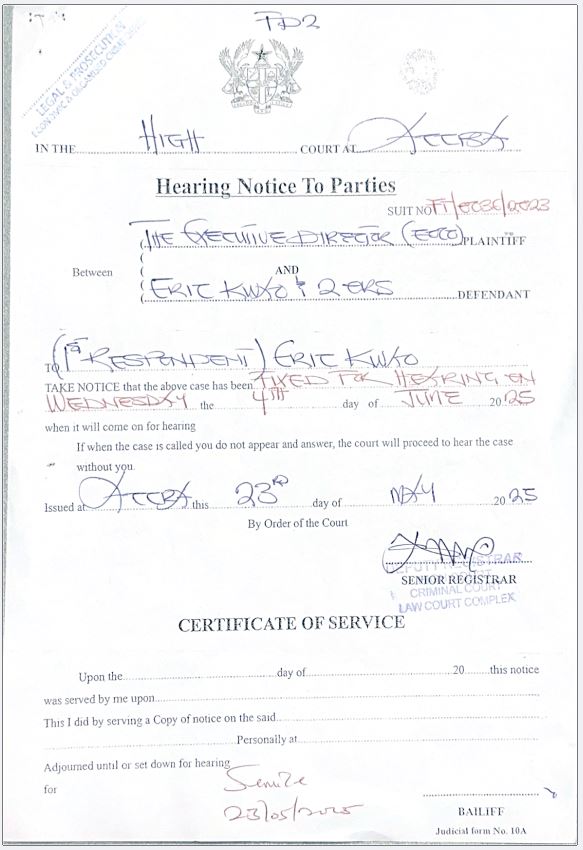 FD2
LEGAL & PROSECUTION
ECONOMIC & ORGANISED CRIME OFFICE
IN THE HIGH COURT AT ACCRA
Hearing Notice To Parties
SUIT NO FT/0036/2023
THE EXECUTIVE DIRECTOR (EOCO) PLAINTIFF
Between AND
ERIC KWAO & 2 ORS DEFENDANT
TO (1st RESPONDENT) ERIC KWAO
TAKE NOTICE that the above case has been FIXED FOR HEARING ON
WEDNESDAY the 4TH day of JUNE 2025
when it will come on for hearing
If when the case is called you do not appear and answer, the court will proceed to hear the case
without you.
Issued at ACCRA this 23RD day of MAY 2025
By Order of the Court
DEPUTY REGISTRAR
SENIOR REGISTRAR
CRIMINAL COURT
LAW COURT COMPLEX
CERTIFICATE OF SERVICE
Upon the day of 20 this notice
was served by me upon
This I did by serving a Copy of notice on the said
Personally at
Adjourned until or set down for hearing
for
23/05/2025
BAILIFF
Judicial form No. 10A